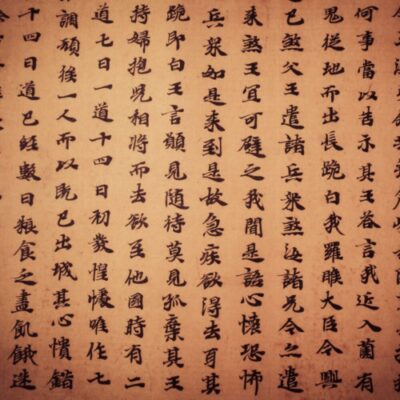 何事當以告示其王荅言我近入薗有
鬼從地而出長跪白我羅睺大臣今興
已煞父王遣諸兵衆煞汝諸兄今亦遣
來煞王宜可避之我聞是語心懷恐怖
兵衆如是來到是故急疾欲得去耳其
跪即白王言願見隨侍莫見孤棄其王
持婦抱兒相將而去欲至他國時有二
道七日一道十四日初發惶懅唯作七
調頓俟一人而以既已出城其心憒錯
十四日道已經數日粮食乏盡飢餓迷